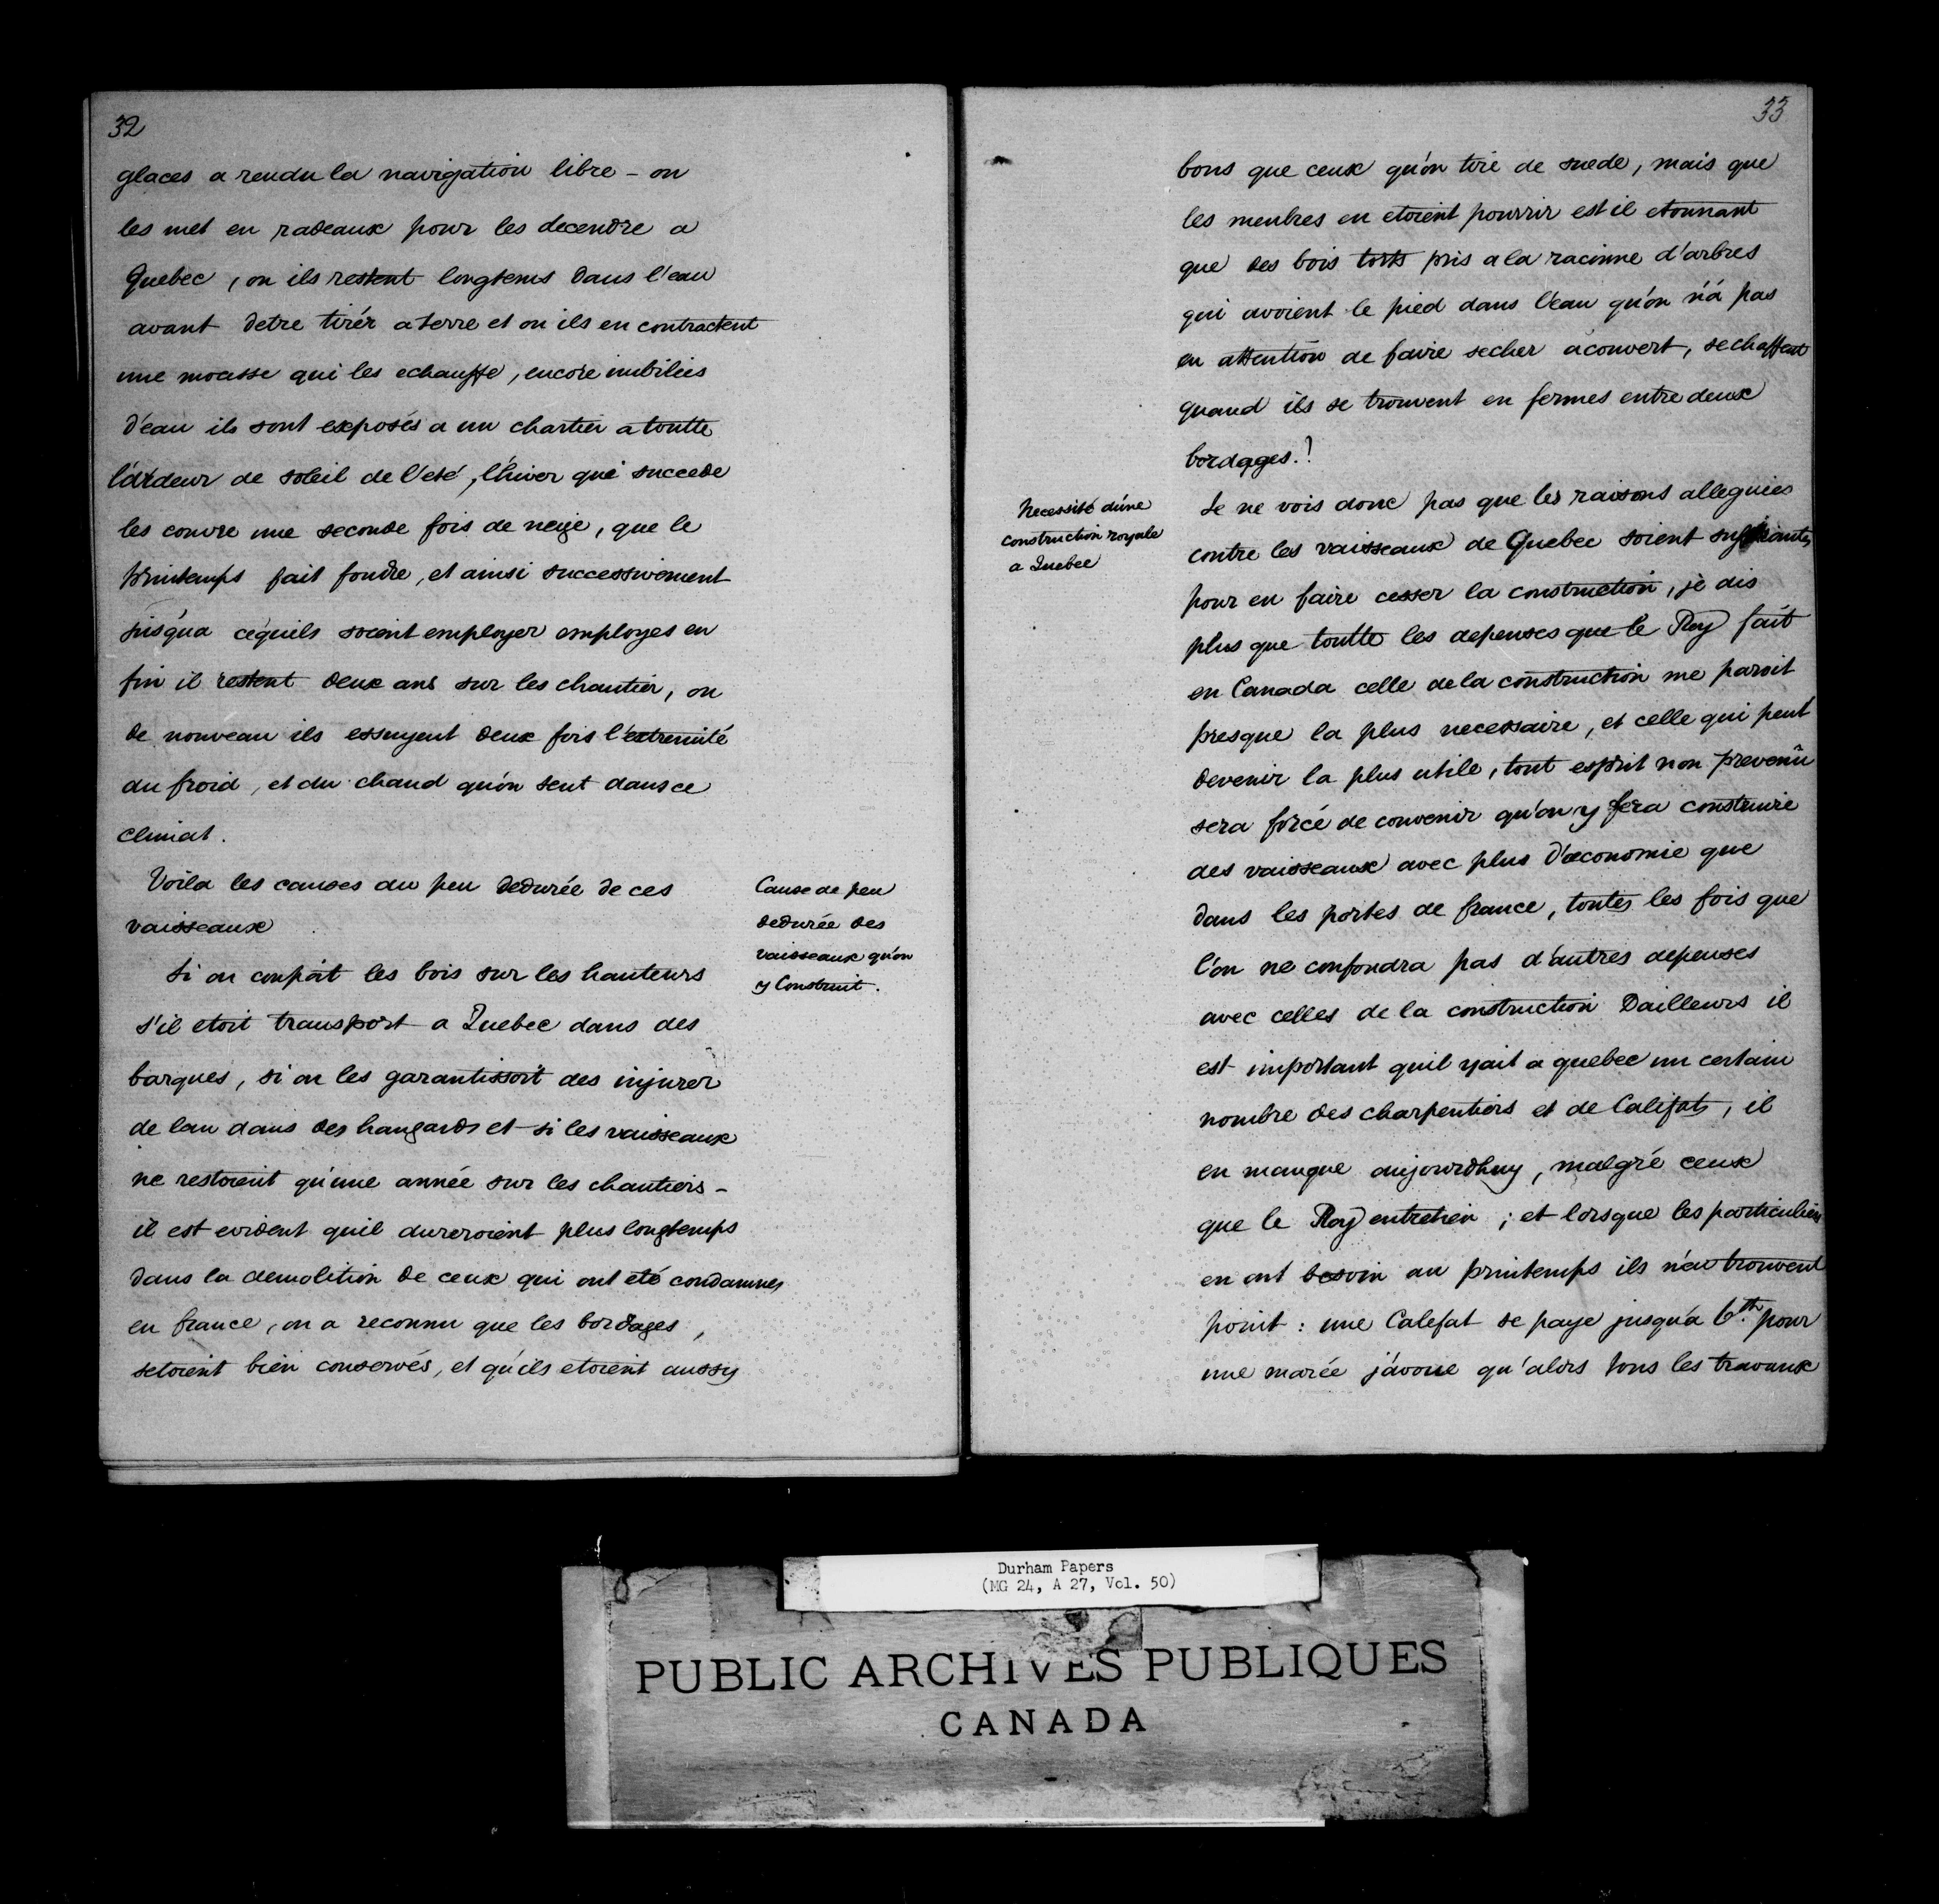 32
glaces a rendu la navigation libre - on
les met en radeaux pour les decendre a
Quebec, ou ils restent longtems dans l'eau
avant detre tirér a terre et ou ils en contractent
une mousse qui les echauffe, encore imbibies
d'eau ils sont exposés a un chartier a toutte
l'ardeur de soleil de l'eté, l'hiver qui succede
les couvre une seconde fois de neige, que le
printemps fait fondre, et ainsi successivement
jusqua cequils soient employer employes en
fin il restent deux ans sur les chantier, ou
de nouveau ils essuyent deux fois l'extremité
du froid, et du chaud qu'on sent dans ce
climat.
Voila les causes du peu dedurée de ces
vaisseaux
Cause de peu
dedurée des
vaisseaux qu'on
y Construit.
Si on coupât les bois sur les hauteurs
s'il etoit transport a Quebec dans des
barques, si on les garantissoit des injurer
de lau dans des hangards et si les vaisseaux
ne restoient qu'une année sur les chantiers -
il est evident quil dureroient plus longtemps
dans la demolition de ceux qui ont eté condamnes
en france, on a reconnu que les bordages,
setoient bien conservés, et qu'ils etoient aussy
33
bons que ceux qu'on tire de suede, mais que
les menbres en etoient pourrir est il etonnant
que des bois torts pris a la racinne d'arbres
qui avoient le pied dans l'eau qu'on n'a pas
eu attention de faire secher acouvert, sechaffent
quand ils se trouvent en fermes entre deux
bordages.?
Necessité d'une
construction royale
a Quebec
Je ne vois donc pas que les raisons alleguies
contre les vaisseaux de Quebec soient suffisantes
pour en faire cesser la construction, je dis
plus que toutte les depenses que le Roy fait
en Canada celle de la construction me paroit
presque la plus necessaire, et celle qui peut
devenir la plus utile, tout esprit non prevenû
sera forcé de convenir qu'on y fera construire
des vaisseaux avec plus d'œconomie que
dans les portes de france, toutes les fois que
l'on ne confondra pas d'autres depenses
avec celles de la construction Dailleurs il
est important quil yait a quebec un certain
nombre des charpentiers et de Calefats, il
en manque aujourdhuy, malgré ceux
que le Roy entretien ; et lorsque les particuliers
en ont besoin au printemps ils n'en trouvent
point : une Calefat se paye jusqu'a 6.th pour
une marée j'avoue qu'alors tous les travaux
Durham Papers
(MG 24, A 27, Vol. 50)
PUBLIC ARCHIVES PUBLIQUES
CANADA